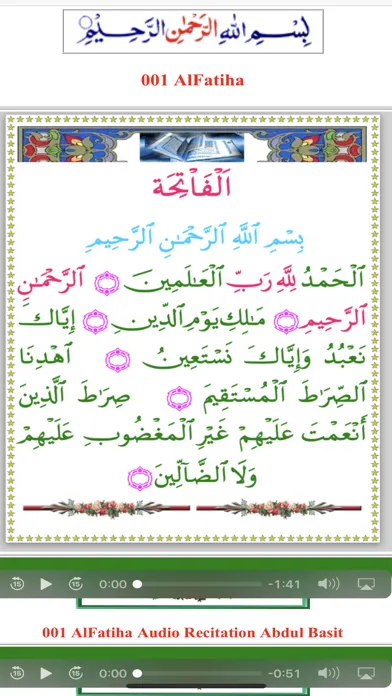 بِسْمِ اللهِ الرَّحْمٰنِ الرَّحِيْمِ
001 AlFatiha
اَلْفَاْتِحَة
بِسْمِ ٱللَّهِ ٱلرَّحْمَـٰنِ ٱلرَّحِيمِ
ٱلْحَمْدُ لِلَّهِ رَبِّ ٱلْعَـٰلَمِينَ ٱلرَّحْمَـٰنِ
ٱلرَّحِيمِ مَـٰلِكِ يَوْمِ ٱلدِّينِ إِيَّاكَ
نَعْبُدُ وَإِيَّاكَ نَسْتَعِينُ ٱهْدِنَا
ٱلصِّرَٰطَ ٱلْمُسْتَقِيمَ صِرَٰطَ ٱلَّذِينَ
أَنْعَمْتَ عَلَيْهِمْ غَيْرِ ٱلْمَغْضُوبِ عَلَيْهِمْ
وَلَا ٱلضَّآلِّينَ
15 15 0:00 -1:41
001 AlFatiha Audio Recitation Abdul Basit
15 15 0:00 -0:51